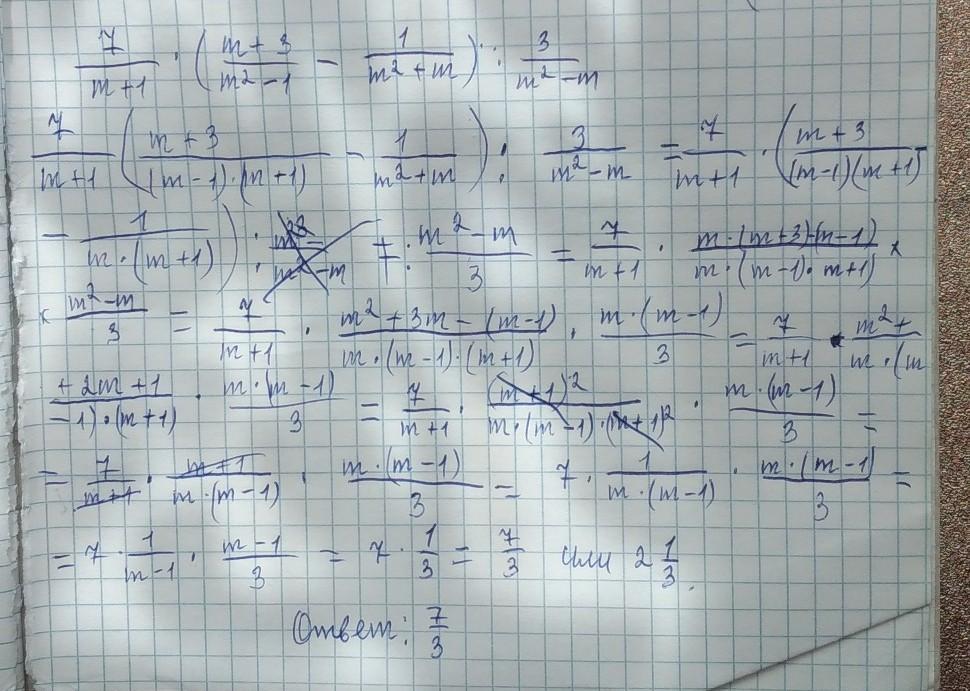 7/(m+1) · ((m+3)/(m²-1) - 1/(m²+m)) : 3/(m²-m)
7/(m+1) ((m+3)/((m-1)·(m+1)) - 1/(m²+m)) : 3/(m²-m) = 7/(m+1) · ((m+3)/((m-1)(m+1)) -
- 1/(m·(m+1))) : (m²-m)/3 = 7/(m+1) · (m·(m+3)-(m-1))/(m·(m-1)·m+1) ×
× (m²-m)/3 = 7/(m+1) · (m²+3m-(m-1))/(m·(m-1)·(m+1)) · (m·(m-1))/3 = 7/(m+1) · (m²+)/(m·(m
(+2m+1)/(-1)·(m+1)) · (m·(m-1))/3 = 7/(m+1) · (m+1)²/(m·(m-1)·(m+1)²) · (m·(m-1))/3 =
= 7/(m+1) · (m+1)/(m·(m-1)) · (m·(m-1))/3 = 7 · 1/(m·(m-1)) · (m·(m-1))/3 =
= 7 · 1/(m-1) · (m-1)/3 = 7 · 1/3 = 7/3 или 2 1/3.
Ответ: 7/3